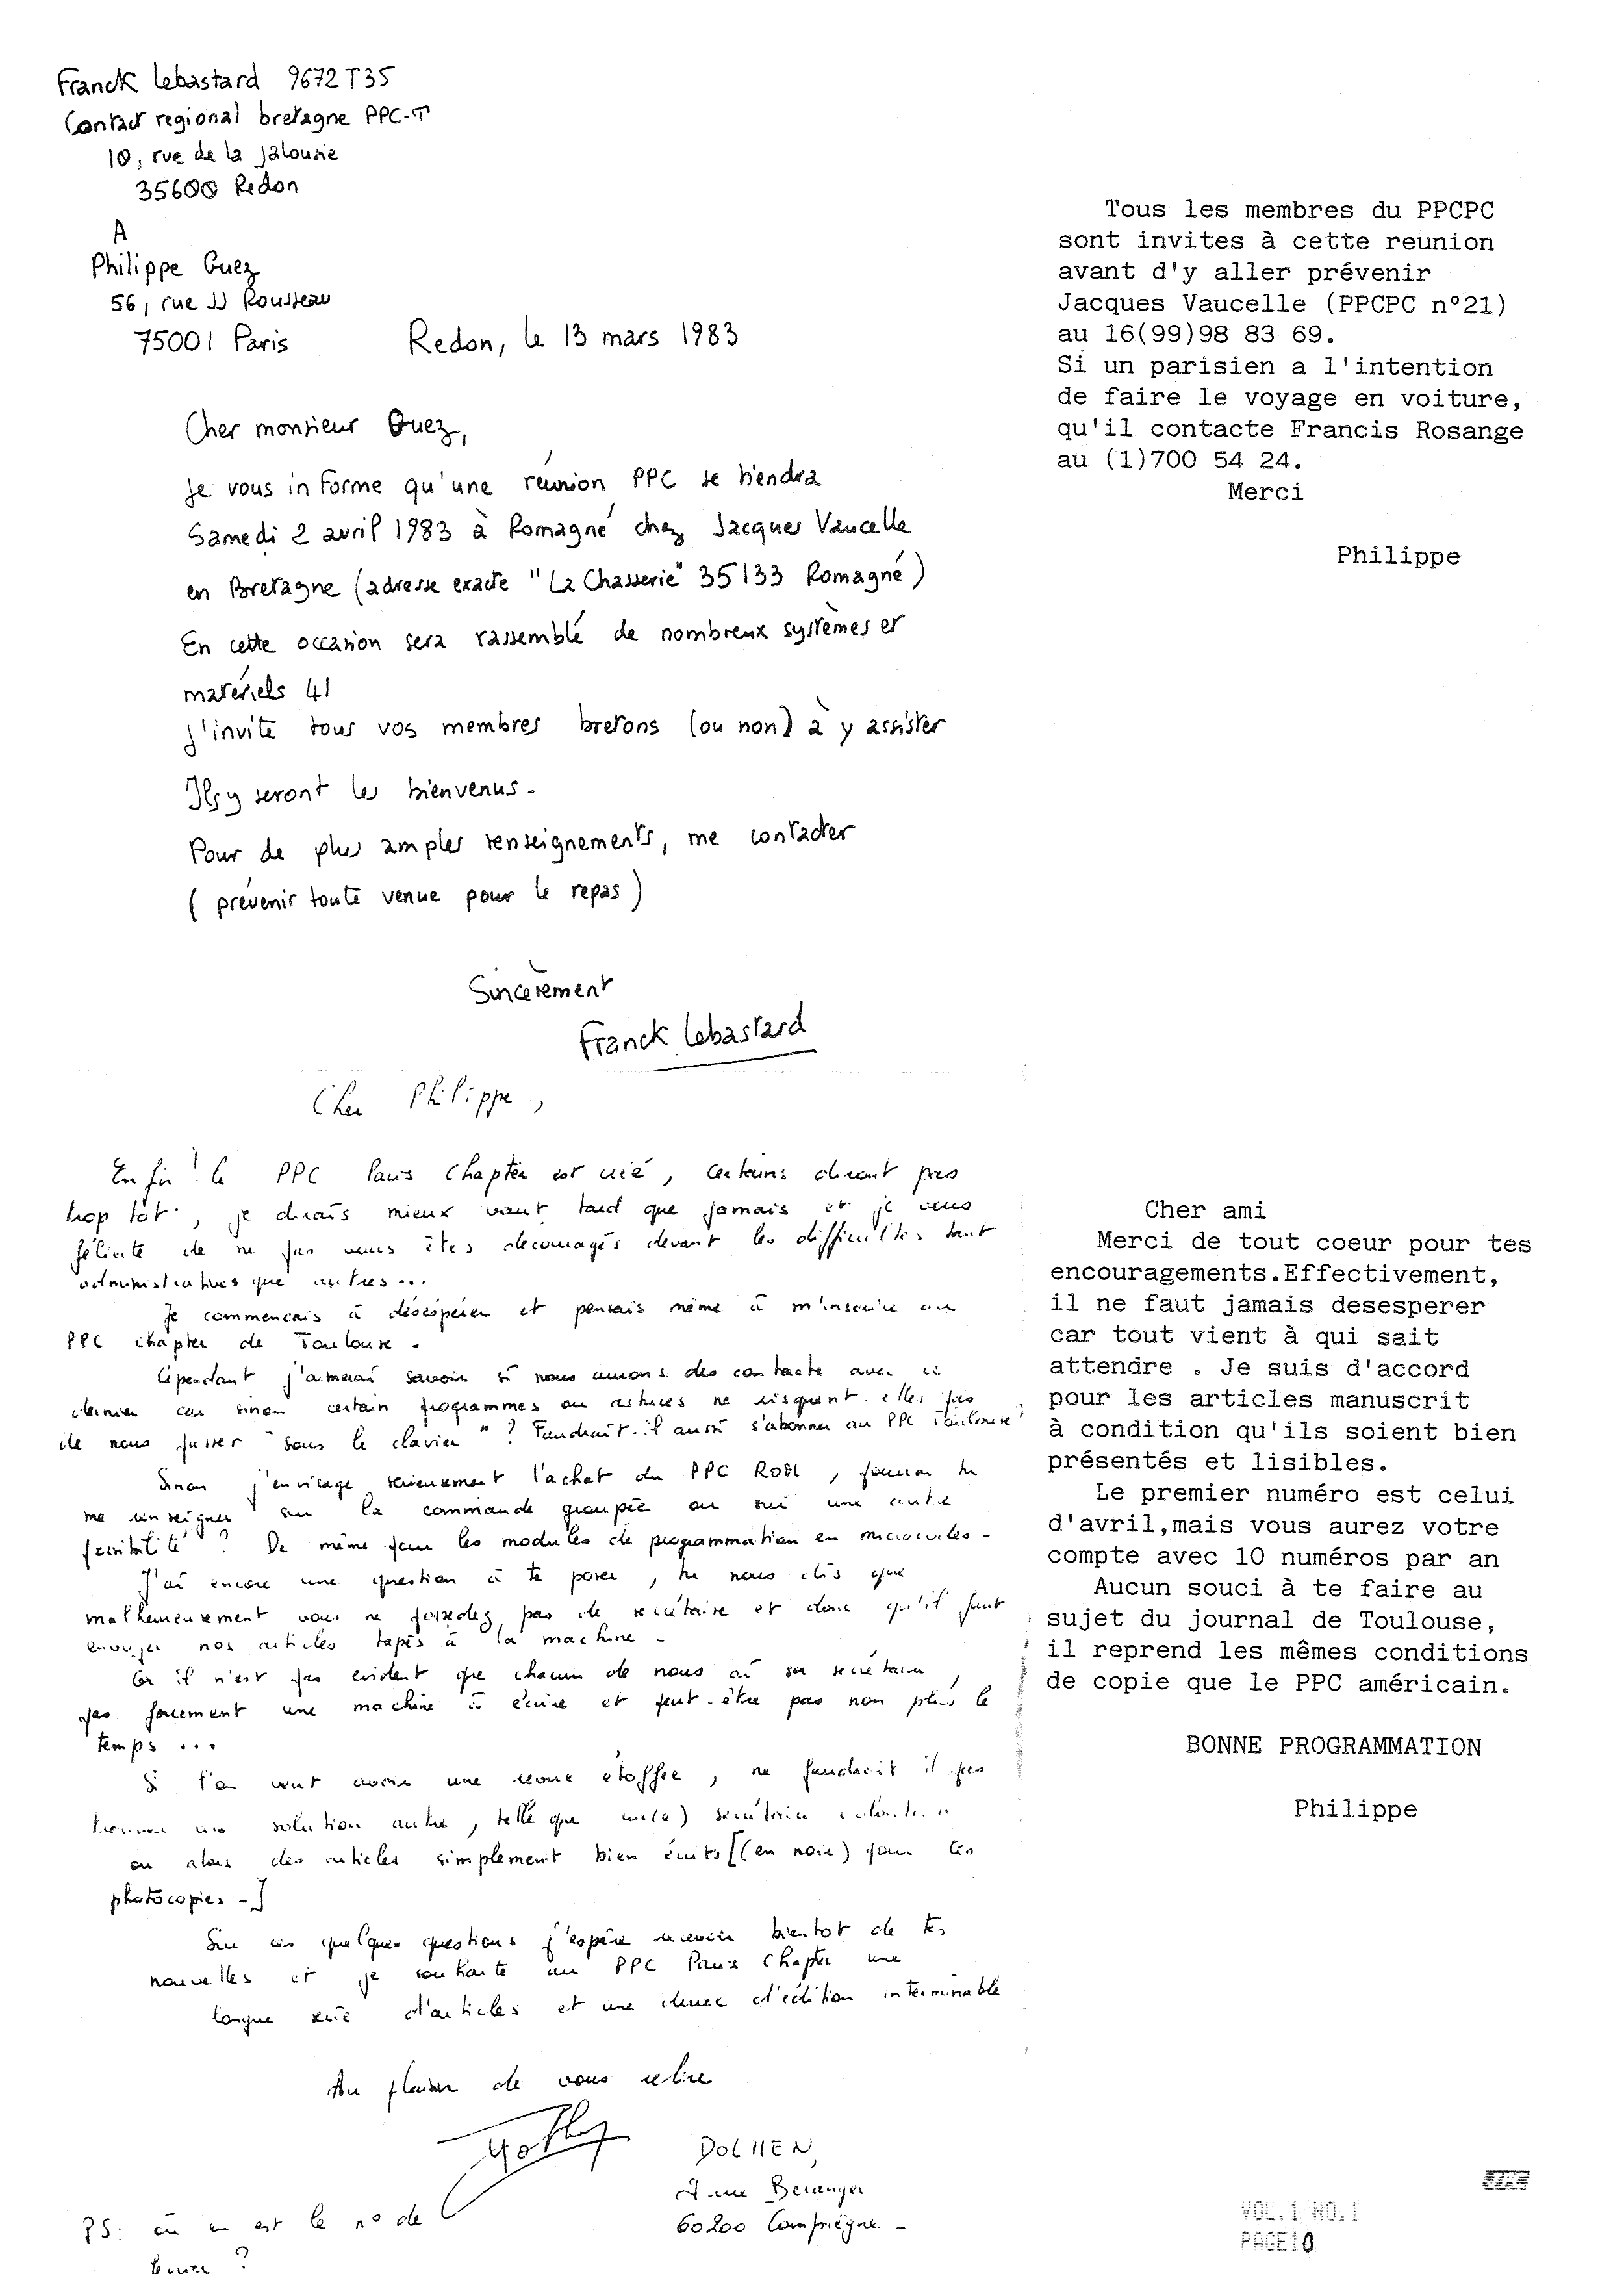 Franck Lebastard 9672T35
Contact regional bretagne PPC-T
10, rue de la jalousie
35600 Redon
A
Philippe Guez
56, rue JJ Rousseau
75001 Paris
Redon, le 13 mars 1983
Cher monsieur Guez,
Je vous informe qu'une réunion PPC se tiendra
Samedi 2 avril 1983 à Romagné chez Jacques Vaucelle
en Bretagne (adresse exacte "La Chasserie" 35133 Romagné)
En cette occasion sera rassemblé de nombreux systèmes et
matériels 41
J'invite tous vos membres bretons (ou non) à y assister
Ils y seront les bienvenus.
Pour de plus amples renseignements, me contacter
(prévenir toute venue pour le repas)
Sincèrement
Franck Lebastard
Tous les membres du PPCPC
sont invites à cette reunion
avant d'y aller prévenir
Jacques Vaucelle (PPCPC n°21)
au 16(99)98 83 69.
Si un parisien a l'intention
de faire le voyage en voiture,
qu'il contacte Francis Rosange
au (1)700 54 24.
Merci
Philippe
Cher Philippe,
Enfin ! le PPC Paris Chapter est créé, certains diront pas
trop tôt, je dirais mieux vaut tard que jamais et je vous
félicite de ne pas vous êtes decouragés devant les difficultés tant
administratives que autres...
Je commencais à désespérer et pensais même à m'inscrire au
PPC chapter de Toulouse.
Cependant j'aimerai savoir si nous aurons des contacts avec ce
dernier car sinon certain programmes ou astuces ne risquent-elles pas
de nous passer "sous le clavier" ? Faudrait-il aussi s'abonner au PPC Toulouse ?
Sinon j'envisage serieusement l'achat du PPC ROM, pourrais tu
me renseigner sur la commande groupée ou sur une autre
possibilité ? De même pour les modules de programmation en microcodes -
J'ai encore une question à te poser, tu nous dis que
malheureusement vous ne possedez pas de secrétaire et donc qu'il faut
envoyer nos articles tapés à la machine -
Or il n'est pas evident que chacun de nous ai sa secrétaire,
pas forcement une machine à écrire et peut-être pas non plus le
temps ...
Si l'on veut avoir une revue étoffée, ne faudrait il pas
trouver une solution autre, telle que un(e) secrétaire
ou alors des articles simplement bien écrits [(en noir) pour les
photocopies -]
Sur ces quelques questions j'espère recevoir bientot de tes
nouvelles et je souhaite au PPC Paris Chapter une
longue série d'articles et une durée d'édition interminable
Au plaisir de vous relire
DOLMEN,
rue Béranger
60200 Compiègne. -
PS: où en est le n° de
fevrier ?
Cher ami
Merci de tout coeur pour tes
encouragements.Effectivement,
il ne faut jamais desesperer
car tout vient à qui sait
attendre . Je suis d'accord
pour les articles manuscrit
à condition qu'ils soient bien
présentés et lisibles.
Le premier numéro est celui
d'avril,mais vous aurez votre
compte avec 10 numéros par an
Aucun souci à te faire au
sujet du journal de Toulouse,
il reprend les mêmes conditions
de copie que le PPC américain.
BONNE PROGRAMMATION
Philippe
VOL.1 NO.1
PAGE10